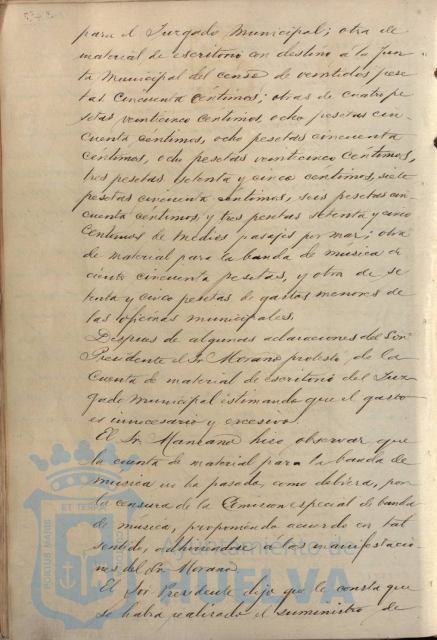 para el Juzgado Municipal; otra de
material de escritorio con destino a la Jun
ta Municipal del censo de veintidos pese
tas cincuenta céntimos; otras de cuatro pe
setas veinticinco céntimos, ocho pesetas cin
cuenta céntimos, ocho pesetas cincuenta
céntimos, ocho pesetas veinticinco céntimos,
tres pesetas setenta y cinco céntimos, siete
pesetas cincuenta céntimos, seis pesetas cin
cuenta céntimos y tres pesetas setenta y cinco
céntimos de medios pasajes por mar; otra
de material para la banda de musica de
ciento cincuenta pesetas, y otra de se
tenta y cinco pesetas de gastos menores de
las oficinas municipales.
Despues de algunas aclaraciones del Sor
Presidente el Sr. Morano protestó de la
cuenta de material de escritorio del Juz
gado Municipal estimando que el gasto
es innecesario y excesivo.
El Sr. Mandano hizo observar que
la cuenta de material para la banda de
musica no ha pasado, como debiera, por
la censura de la Comision especial de banda
de musica, proponiendo acuerdo en tal
sentido, adhiriendose a las manifestacio
nes del Sr. Morano.
El Sr. Presidente dijo que le consta que
se habia realizado el suministro de
PORTUS MARIS ET TERRAE CUSTODIO
Ayuntamiento de
HUELVA